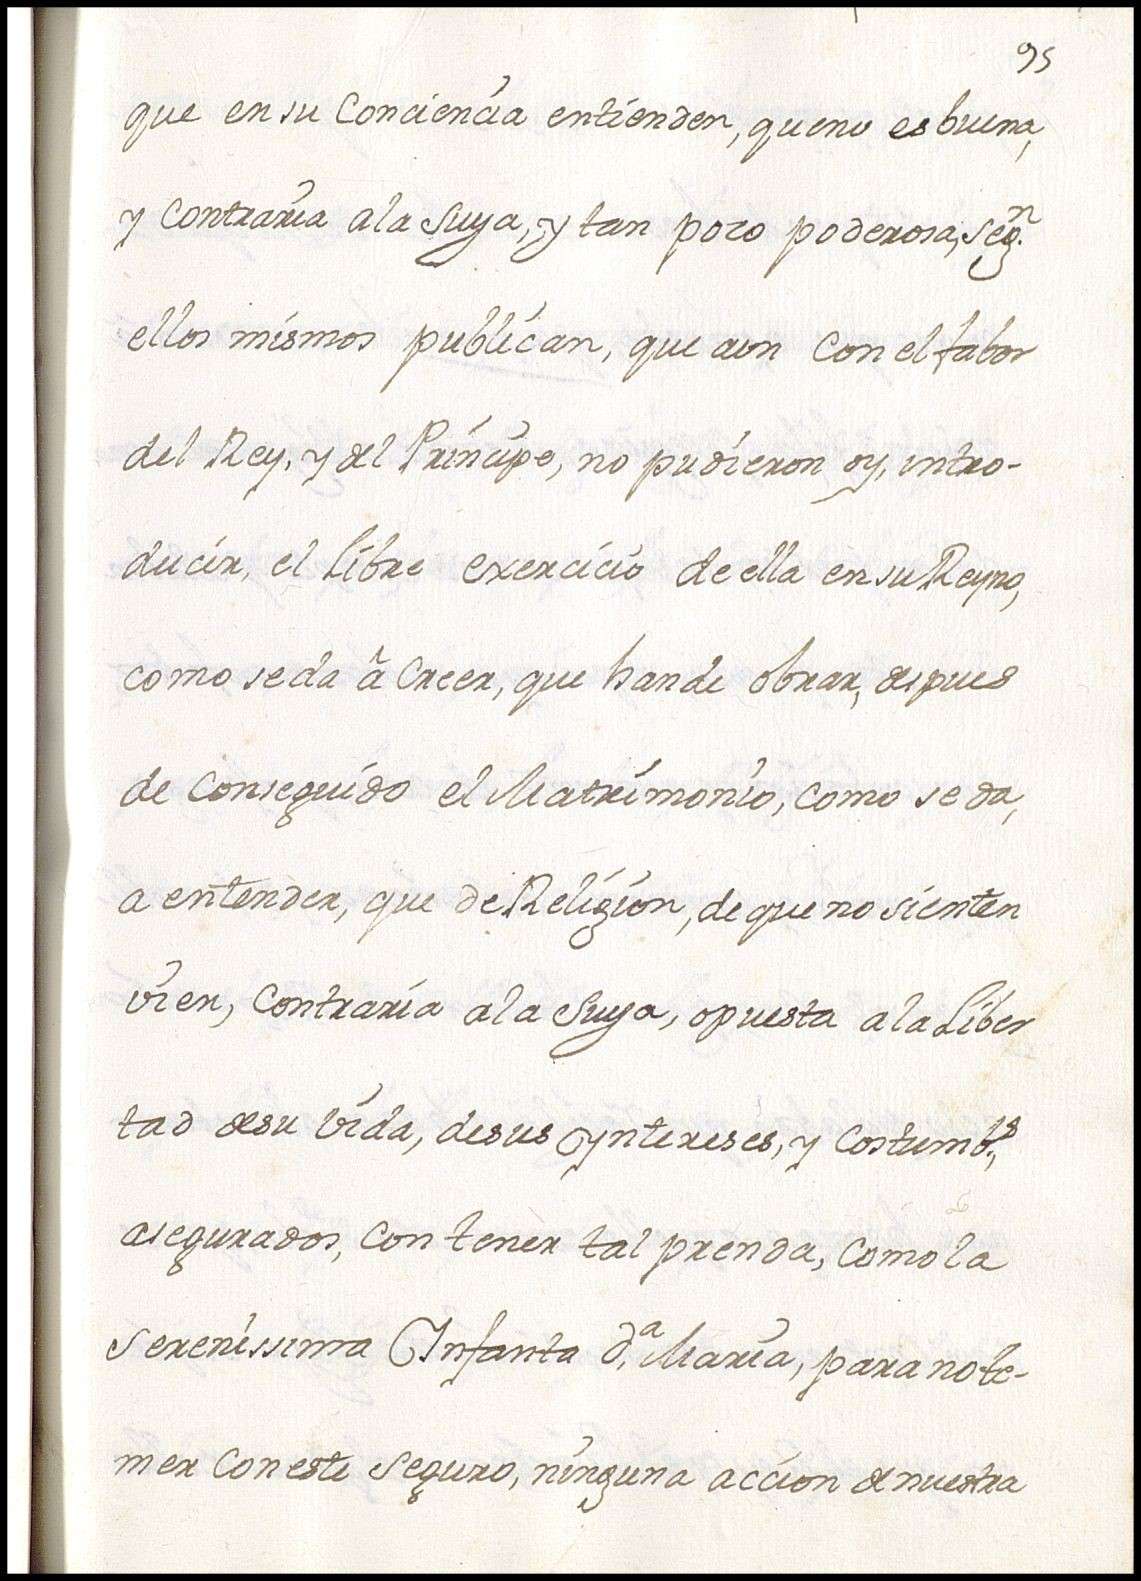 95
que en su Conciencia entienden, queno es buena,
y Contraria ala Suya, y tan poco poderosa, segn.
ellos mismos publican, que aon Con el fabor
del Rey, y del Principe, no pudieron oy, intro-
ducir, el libre exercicio de ella en su Reyno,
como se da â Creer, que hande obrar, despues
de Conseguido el Matrimonio, como se da,
a entender, que de Religion, de que no sienten
vien, Contraria ala Suya, opuesta ala Liber
tad desu vida, desus Yntereses, y Costumbs.,
asegurados, Con tener tal prenda, Como la
Serenissima Infanta d.a Maria, para no te-
mer Con este Seguro, ninguna accion de nuestra